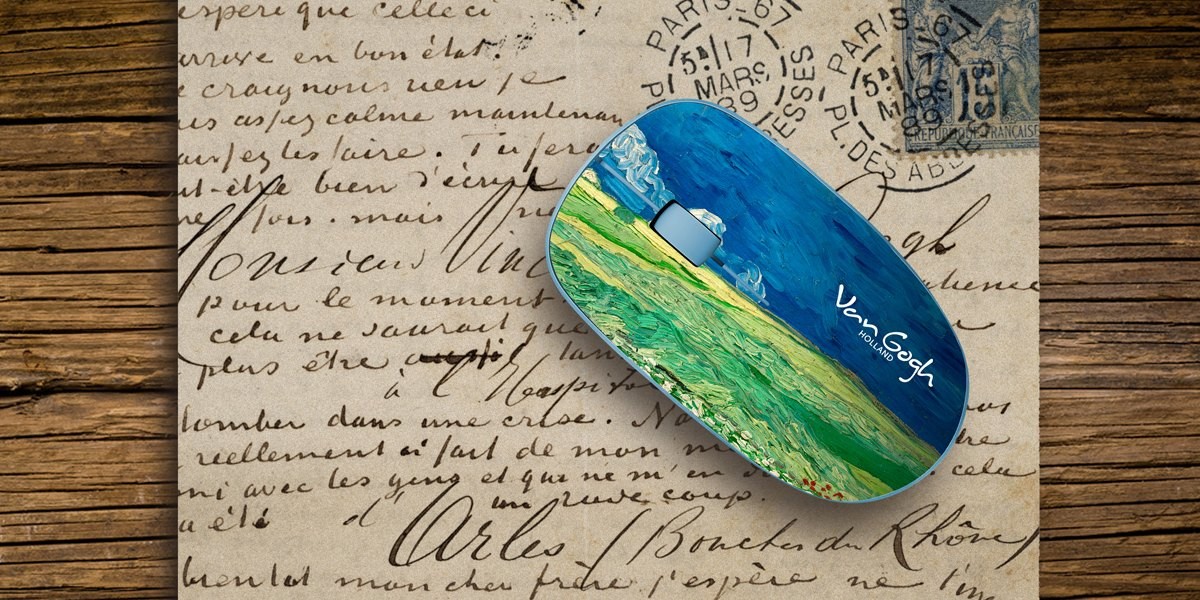 espère que celle ci
arrive en bon état.
e craignons rien je
is assez calme maintenan
aissez les faire. Tu fera
ut-être bien d'écrire
ne fois. mais
PARIS_67
5E 17
MARS
89
PL. DES ABBESSES
PARIS_67
5E 17
MARS
89
PL. DES ABBESSES
15
REPUBLIQUE FRANCAISE
Monsieur Vinc
ogh
pour le moment
cela ne saurait que
plus être aussi
à l'Hospita
Van Gogh
HOLLAND
tomber dans une crise. No
réellement à fait de mon m
mi avec les gens et que ne m'en
cela
un rude coup.
a été
d'Arles (Bouches du Rhône)
bientot mon cher frère j'espère ne